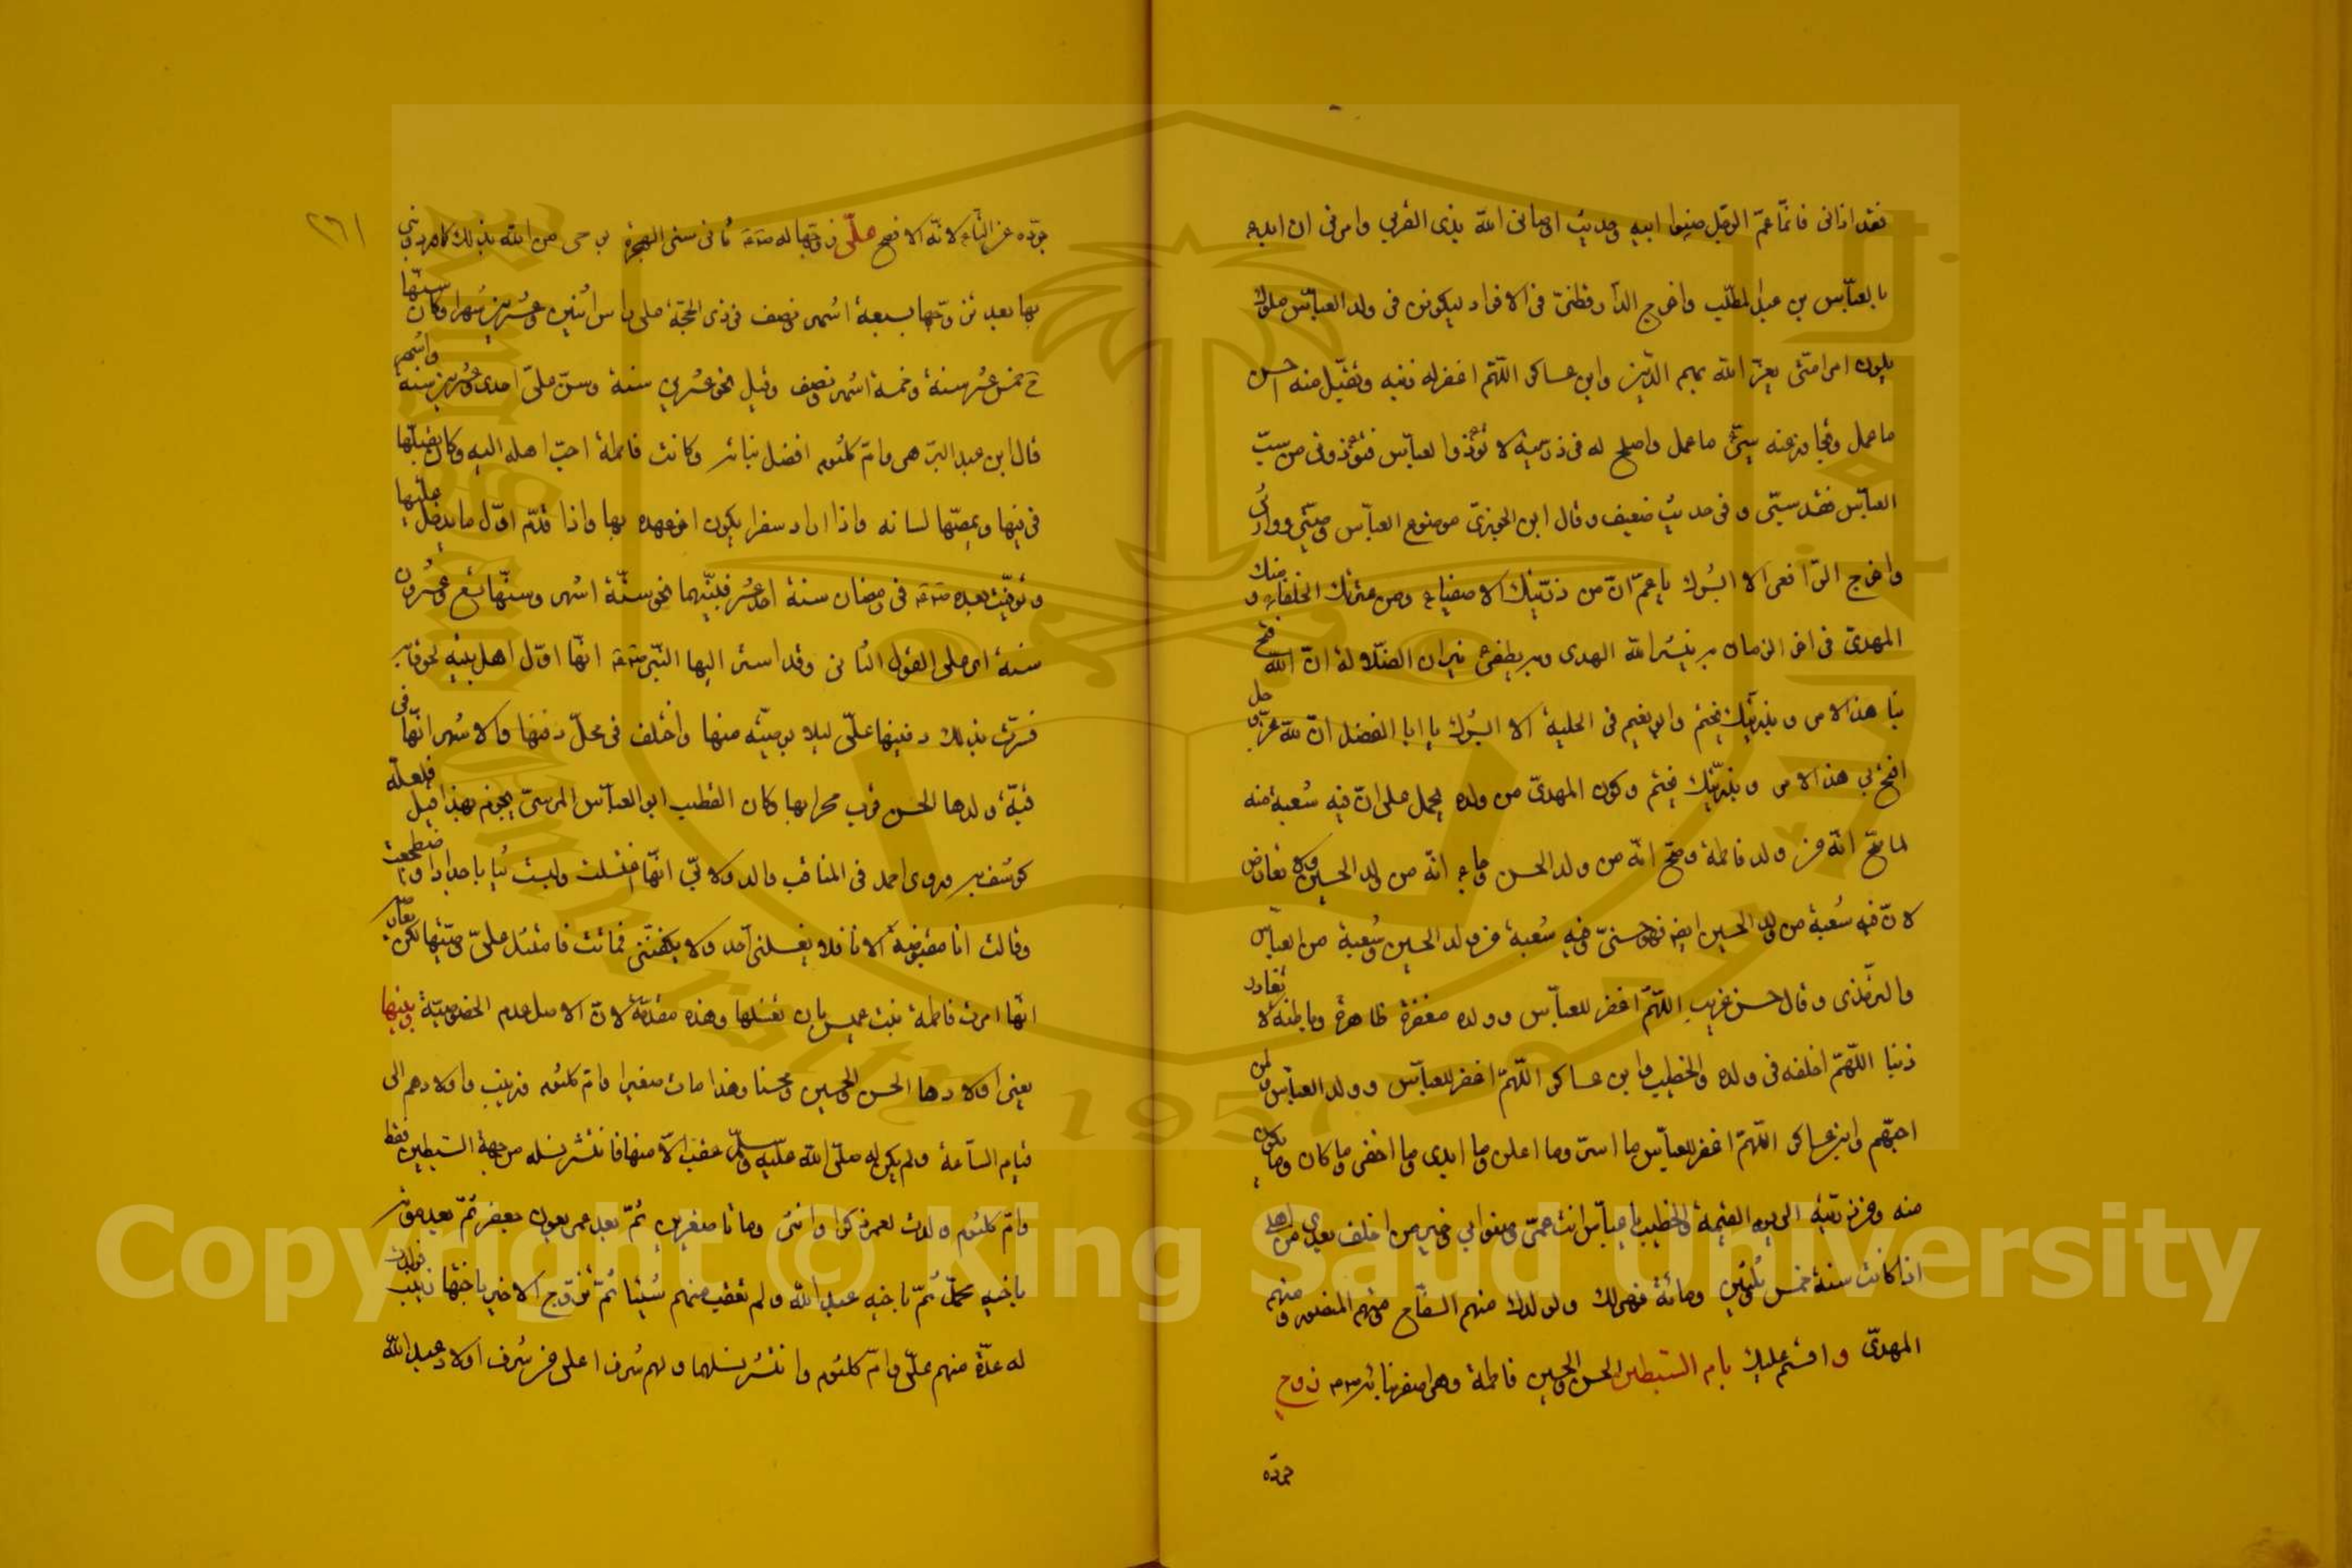 فقد اذانى فانما عم الرجل صنوا ابيه وحديث اوصانى الله بذى القربى وامرنى ان ابدء
بالعباس بن عبد المطلب واخرج الدارقطنى فى الافراد ليكونن فى ولد العباس ملوك
يلون امر امتى يعز الله بهم الدين وابن عساكر اللهم اغفر له ذنبه وتقبل منه احسن
ما عمل وتجاوز عنه سيئ ما عمل واصلح له فى ذريته لا تؤذوا العباس فتؤذونى من سب
العباس فقد سبنى و فى حديث ضعيف وقال ابن الجوزى موضوع العباس وصيى ووارثى
واخرج الرافعى الا ابشرك يا عم ان من ذريتك الاصفياء ومن عترتك الخلفاء ومنك
المهدى فى اخر الزمان به ينشر الله الهدى وبه يطفئ نيران الضلالة ان الله فتح
بنا هذا الامر وبذريتك يختم وابو نعيم فى الحلية الا ابشرك يا ابا الفضل ان لله عز وجل
افتح بى هذا الامر وبذريتك يختم وكون المهدى من ولده يحمل على ان فيه شعبة منه
لما صح انه من ولد فاطمة وصح انه من ولد الحسن وجاء انه من ولد الحسين ولا تعارض
لان فيه شعبة من ولد الحسين ايضا فهو حسنى وفيه شعبة من ولد الحسين وشعبة من العباس
والترمذى وقال حسن غريب اللهم اغفر للعباس وولده مغفرة ظاهرة وباطنة لا تغادر
ذنبا اللهم اخلفه فى ولده والخطيب وابن عساكر اللهم اغفر للعباس وولد العباس ولمن
احبهم وابن عساكر اللهم اغفر للعباس ما اسر وما اعلن وما ابدى وما اخفى وما كان وما يكون
منه ومن ذريته الى يوم القيمة والخطيب يا عباس انت عمى وصنوا ابى وخير من اخلف بعدى من اهلى
اذا كانت سنة خمس وثلثين ومائة فهى لك ولولدك منهم السفاح ومنهم المنصور ومنهم
المهدى واقسم عليك بام السبطين الحسن والحسين فاطمة وهى اصغر بناته زوج
٢٦١
على زوجها له ثانى سنى الهجرة بوحى من الله بذلك كما ورد وبنى
بها بعد تزوجها بسبعة اشهر ونصف فى ذى الحجة على راس اثنين وعشرين شهرا وكان سنها
ح خمس عشر سنة وخمسة اشهر ونصف وقيل نحو عشرين سنة وسن على احدى وعشرين سنة واشهر
قال ابن عبد البر هى وام كلثوم افضل بناته وكانت فاطمة احب اهله اليه وكان يقبلها
فى فيها ويمصها لسانه واذا اراد سفرا يكون اخر عهده بها واذا قدم اول ما يدخل عليها
وتوفيت بعده فى رمضان سنة احد عشر فبينهما نحو ستة اشهر وسنها تسع وعشرون
سنة اى على القول الثانى وقد اسر اليها النبى انها اول اهل بيته لحوقا به
فسرت بذلك دفنها على ليلا بوصية منها واختلف فى محل دفنها والاشهر انها فى
قبة ولدها الحسن قرب محرابها وكان القطب ابو العباس المرسى يجزم بهذا قيل فلعله
كوشف به وروى احمد فى المناقب والدولابى انها اغتسلت ولبست ثيابا جدادا واضطجعت
وقالت انا مقبوضة الان فلا يغسلنى احد ولا يكفننى فماتت فامتثل على وصيتها لكن
انها امرت فاطمة بنت عميس بان تغسلها وهذه مقدمة لان الاصل عدم الخصوصية وبنيها
يعنى اولادها الحسن والحسين ومحسنا وهذا مات صغيرا وام كلثوم وزينب واولادهم الى
قيام الساعة ولم يكن له صلى الله عليه وسلم عقب الا منها فانتشر نسله من جهة السبطين فقط
وام كلثوم ولدت لعمر ذكرا وانثى وماتا صغيرين ثم بعد عمر بعون بن جعفر ثم بعد موته
باخيه محمد ثم باخيه عبد الله ولم تعقب منهم شيئا ثم تزوج الاخير باختها زينب فولدت
له عدة منهم على وام كلثوم وانتشر نسلهما ولهم شرف اعلى من شرف اولاد عبد الله
King Saud University
1957
Copyright © King Saud University